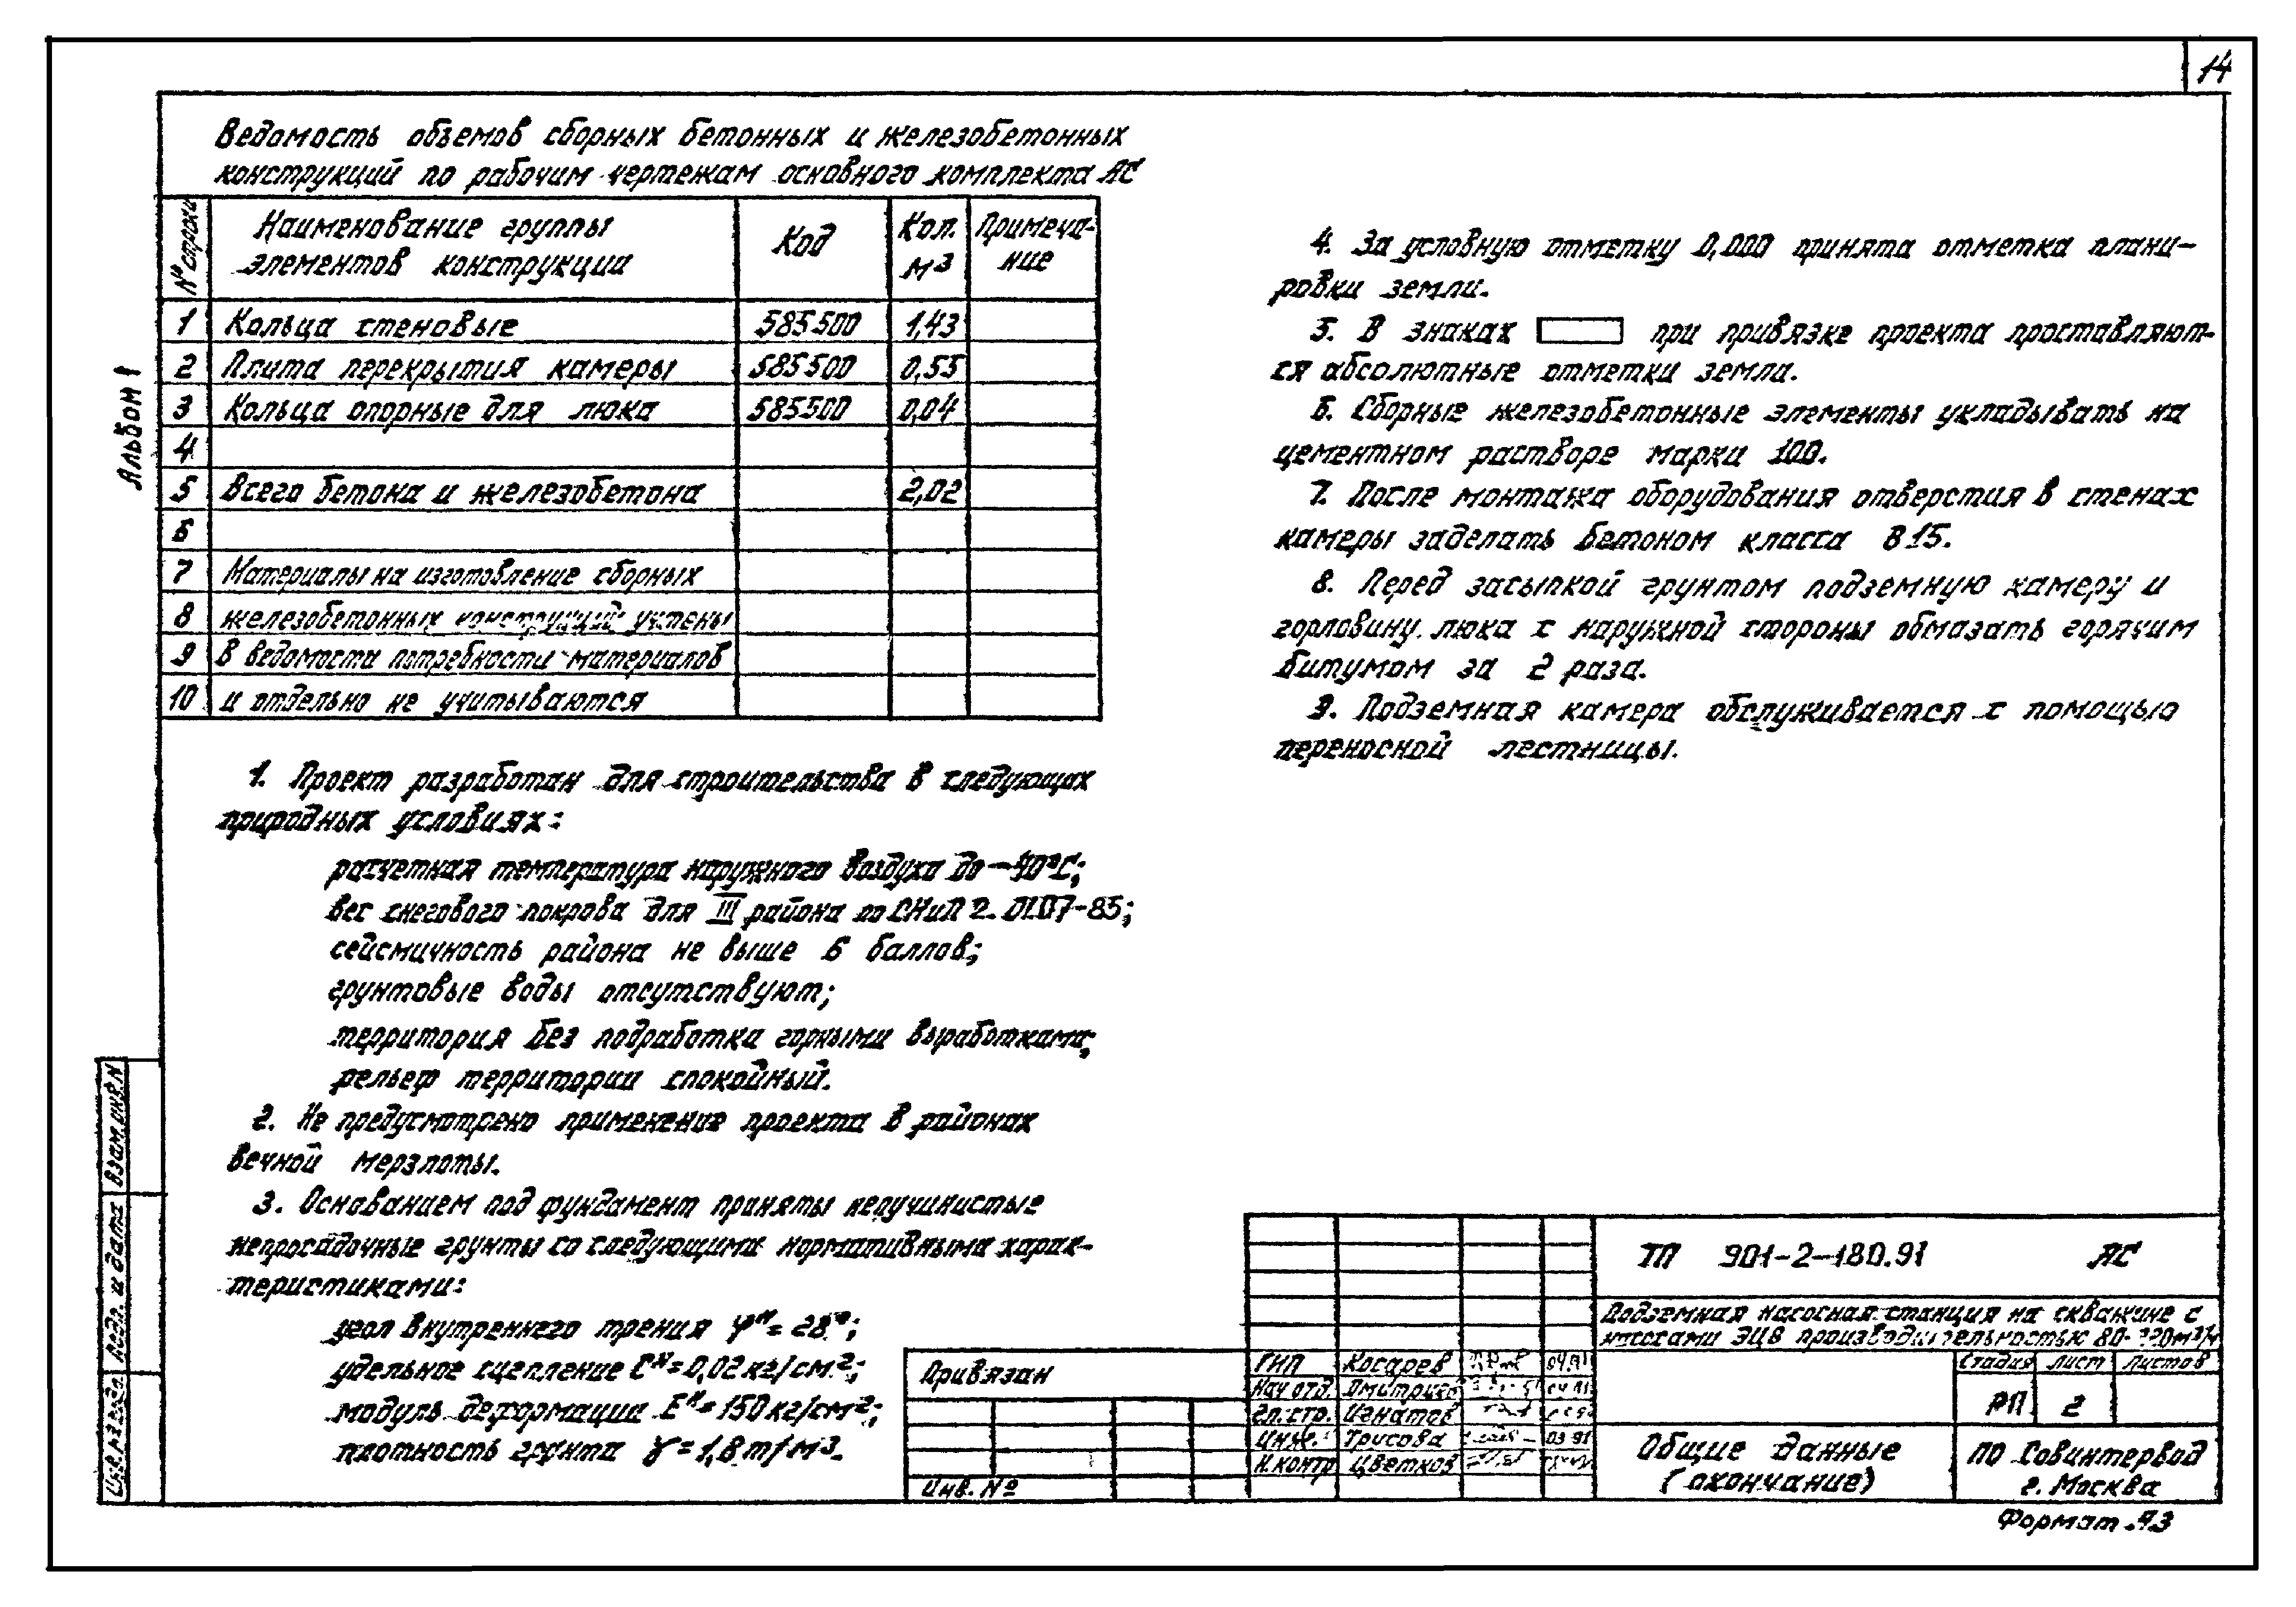 14
Ведомость объемов сборных бетонных и железобетонных
конструкций по рабочим чертежам основного комплекта АС
№ строки | Наименование группы элементов конструкции | Код | Кол. м³ | Примеча-ние
1 | Кольца стеновые | 585500 | 1,43
2 | Плита перекрытия камеры | 585500 | 0,55
3 | Кольца опорные для люка | 585500 | 0,04
4
5 | Всего бетона и железобетона | 2,02
6
7 | Материалы на изготовление сборных
8 | железобетонных конструкций учтены
9 | в ведомости потребности материалов
10 | и отдельно не учитываются
Альбом 1
1. Проект разработан для строительства в следующих
природных условиях:
расчетная температура наружного воздуха до
вес снегового покрова для III района по СНиП 2.01.07-85;
сейсмичность района не выше 6 баллов;
грунтовые воды отсутствуют;
территория без подработка горными выработками;
рельеф территории спокойный.
2. Не предусмотрено применение проекта в районах
вечной мерзлоты.
3. Основанием под фундамент приняты непучинистые
непросадочные грунты со следующими нормативными харак-
теристиками:
угол внутреннего трения φᴴ = 28°;
удельное сцепление Cᴴ = 0,02 кг/см²;
модуль деформации Eᴴ = 150 кг/см²;
плотность грунта γ = 1,8 т/м³.
4. За условную отметку 0,000 принята отметка плани-
ровки земли.
5. В знаках при привязке проекта проставляют-
ся абсолютные отметки земли.
6. Сборные железобетонные элементы укладывать на
цементном растворе марки 100.
7. После монтажа оборудования отверстия в стенах
камеры заделать бетоном класса В15.
8. Перед засыпкой грунтом подземную камеру и
горловину люка с наружной стороны обмазать горячим
битумом за 2 раза.
9. Подземная камера обслуживается с помощью
переносной лестницы.
Взам. инв. №
Подп. и дата
Инв. № подл.
Привязан
Инв. №
ГИП | Косарев | 04.91
Нач. отд. | Дмитриев | 04.91
Гл. стр. | Игнатов
Инж. | Трисова | 03.91
Н. контр | Цветков
ТП 901-2-180.91 АС
Подземная насосная станция на скважине с
насосами ЭЦВ производительностью
Стадия | Лист | Листов
РП | 2
Общие данные
(окончание)
ПО Совинтервод
г. Москва
Формат А3